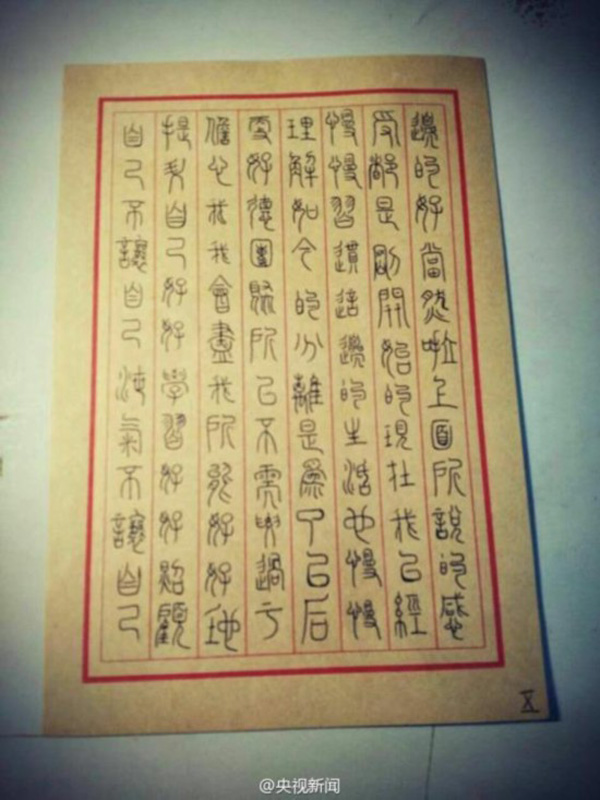 邊的好當然啦上面所說的感
受都是剛開始的現在我已經
慢慢習慣這邊的生活也慢慢
理解如今的分離是為了以后
更好德團聚所以不需要過于
擔心我我會盡我所能好好地
提升自己好好學習好好照顧
自己不讓自己泄氣不讓自己
X
@央视新闻